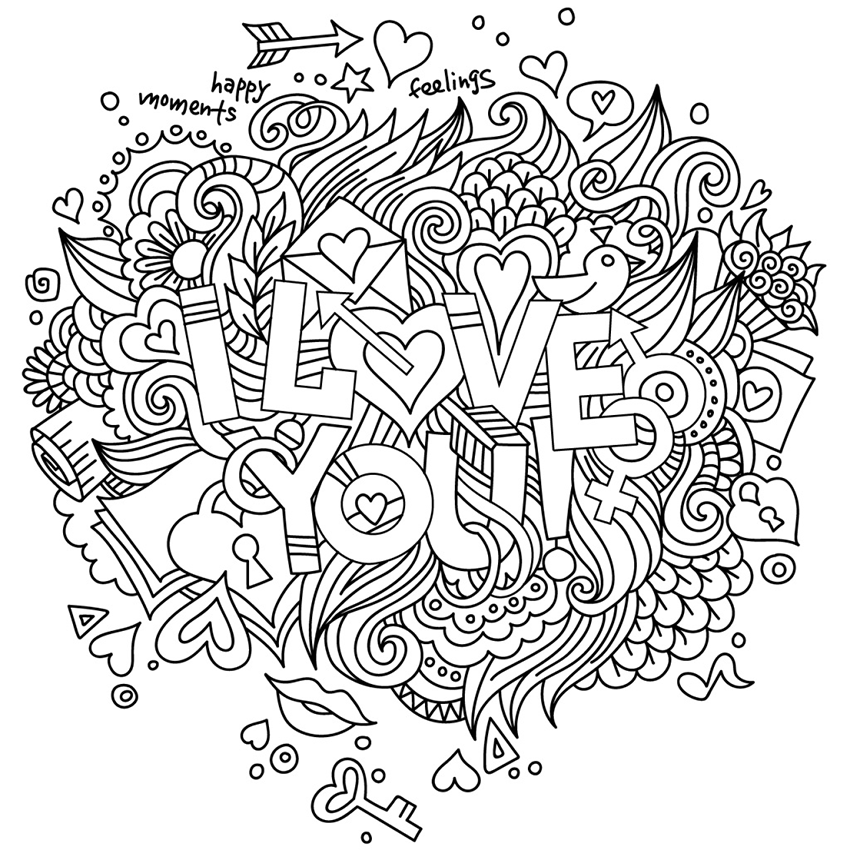 happy
moments
feelings
I LOVE
YOU!